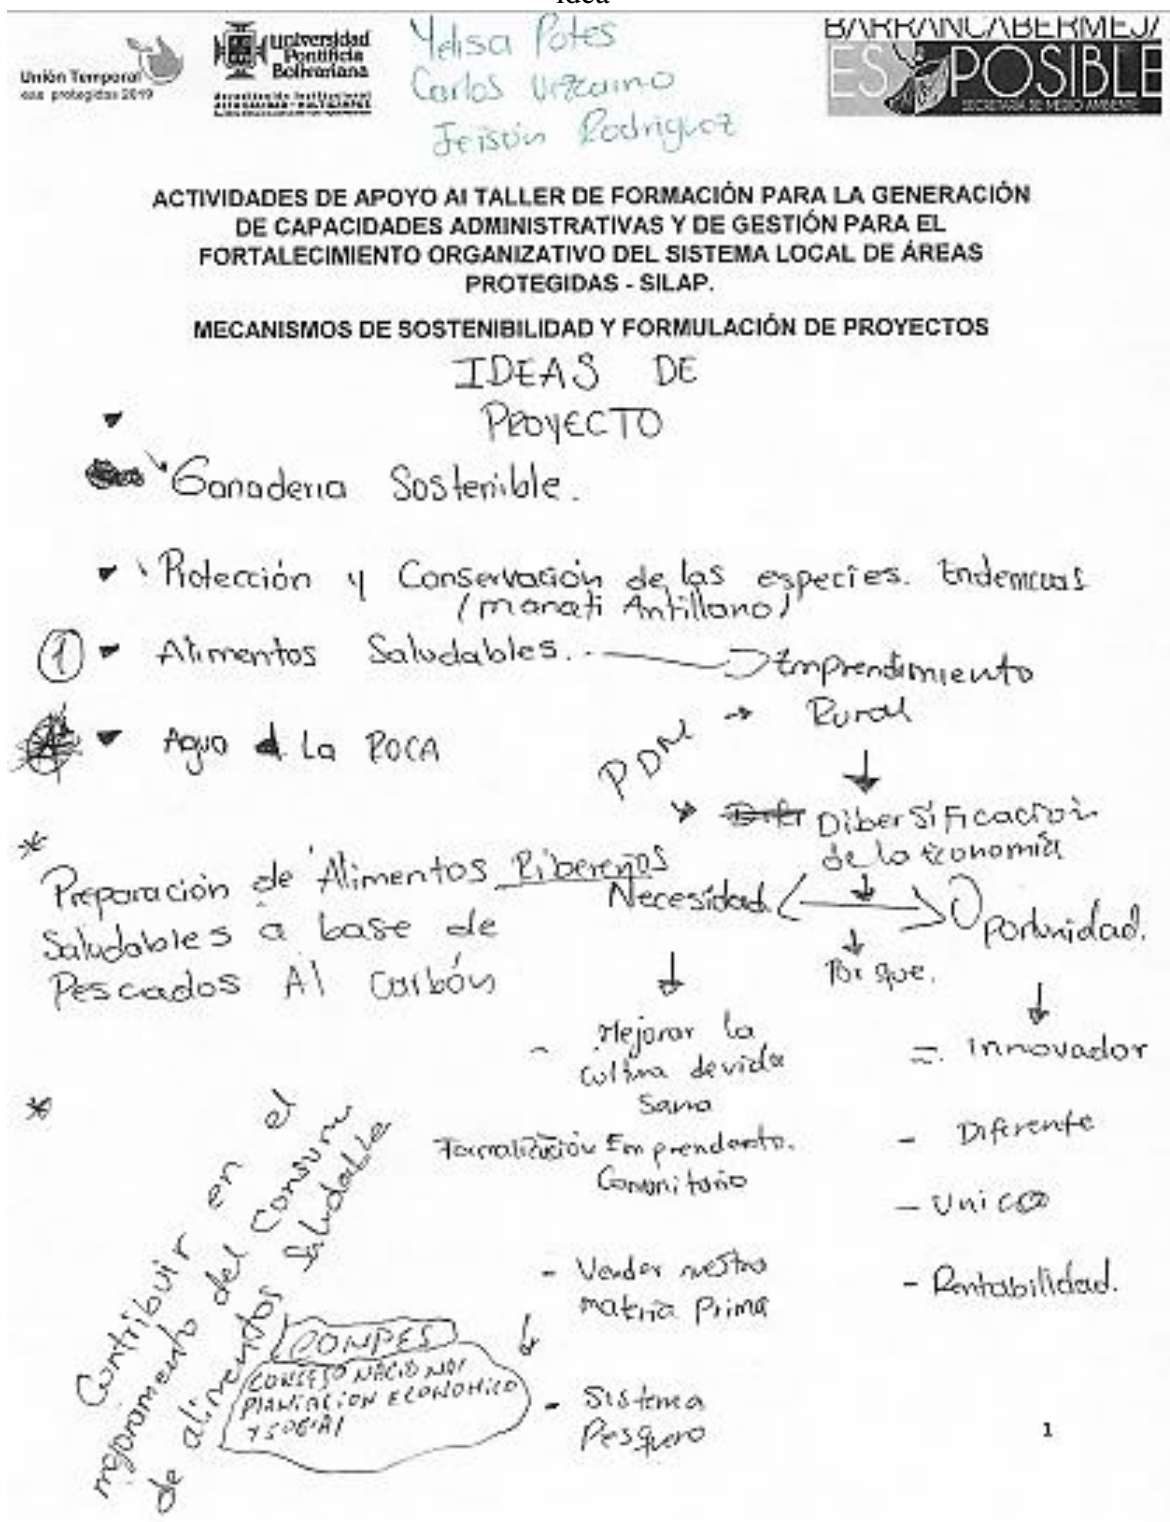 idea
Unión Temporal
universidad
Pontificia
Bolivariana
Yelisa Potes
Carlos Vizcaino
Jeison Rodriguez
BARRANCABERMEJA
ES POSIBLE
SECRETARÍA DE MEDIO AMBIENTE
ACTIVIDADES DE APOYO Al TALLER DE FORMACIÓN PARA LA GENERACIÓN
DE CAPACIDADES ADMINISTRATIVAS Y DE GESTIÓN PARA EL
FORTALECIMIENTO ORGANIZATIVO DEL SISTEMA LOCAL DE ÁREAS
PROTEGIDAS - SILAP.
MECANISMOS DE SOSTENIBILIDAD Y FORMULACIÓN DE PROYECTOS
IDEAS DE
PROYECTO
Ganaderia Sostenible.
Protección y Conservación de las especies. Endemicas
(manati Antillano)
1 Alimentos Saludables.
Emprendimiento
Rural
Agua La ROCA
PDM
Dibersificacion
de la economia
* Preparación de Alimentos Ribereños
Saludables a base de
Pescados Al Carbón
Necesidad
Oportunidad.
Por que.
- Mejorar la
cultura de vida
Sana
Formalización Emprendento.
Comunitario
- Vender nestra
materia Prima
- Sistema
Pesquero
= innovador
- Diferente
- Unico
- Rentabilidad.
* Contribuir en el
mejoramento del Consumo
de alimentos Saludable
CONPES
CONSEJO NACIONAL
PLANIACION ECONOMICO
Y SOCIAL
1